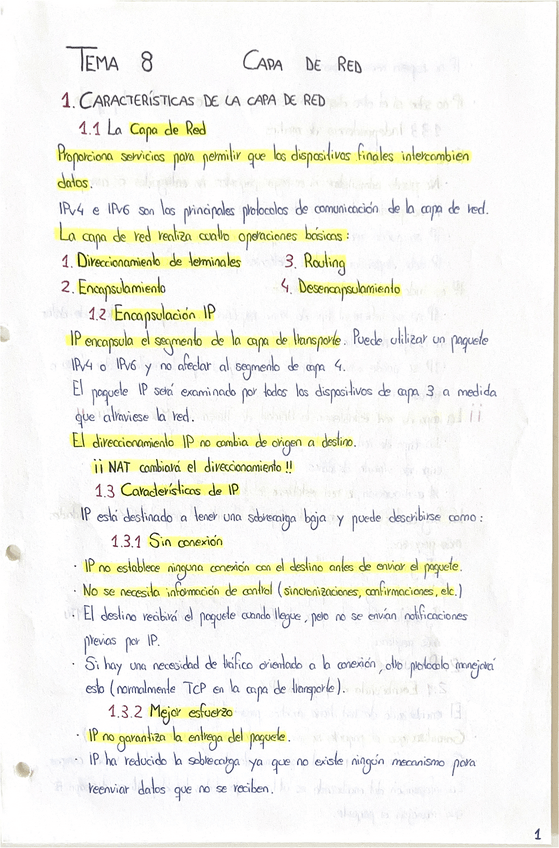 TEMA 8 CAPA DE RED
1. CARACTERÍSTICAS DE LA CAPA DE RED
1.1 La Capa de Red
Proporciona servicios para permitir que los dispositivos finales intercambien
datos.
IPv4 e IPv6 son los principales protocolos de comunicación de la capa de red.
La capa de red realiza cuatro operaciones básicas:
1. Direccionamiento de terminales 3. Routing
2. Encapsulamiento 4. Desencapsulamiento
1.2 Encapsulación IP
IP encapsula el segmento de la capa de transporte. Puede utilizar un paquete
IPv4 o IPv6 y no afectar al segmento de capa 4.
El paquete IP será examinado por todos los dispositivos de capa 3 a medida
que atraviese la red.
El direccionamiento IP no cambia de origen a destino.
¡¡ NAT cambiará el direccionamiento !!
1.3 Características de IP
IP está destinado a tener una sobrecarga baja y puede describirse como:
1.3.1 Sin conexión
· IP no establece ninguna conexión con el destino antes de enviar el paquete.
· No se necesita información de control (sincronizaciones, confirmaciones, etc.)
· El destino recibirá el paquete cuando llegue, pero no se envían notificaciones
previas por IP.
· Si hay una necesidad de tráfico orientado a la conexión, otro protocolo manejará
esto (normalmente TCP en la capa de transporte).
1.3.2 Mejor esfuerzo
· IP no garantiza la entrega del paquete.
· IP ha reducido la sobrecarga ya que no existe ningún mecanismo para
reenviar datos que no se reciben.
1